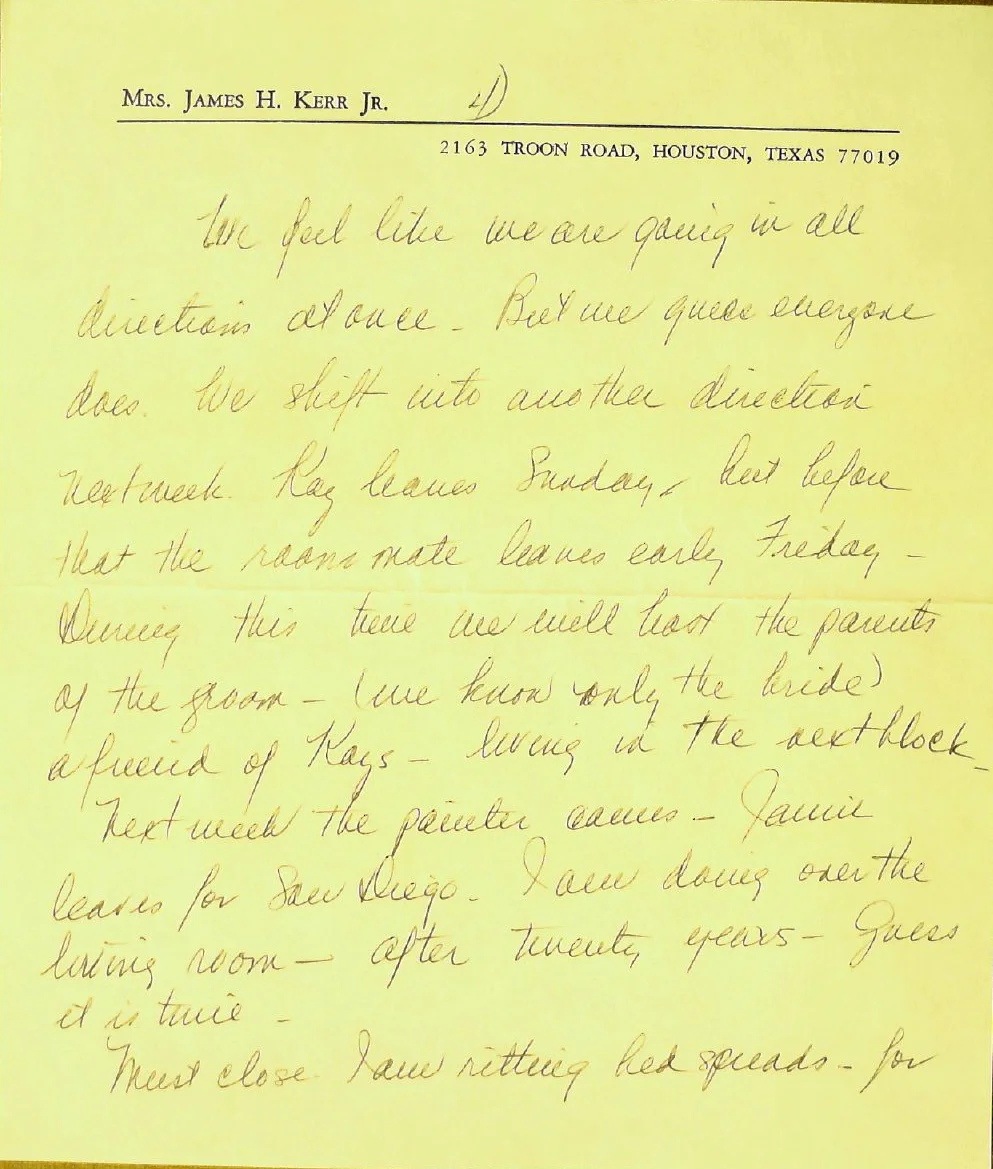 MRS. JAMES H. KERR JR. 4)
2163 TROON ROAD, HOUSTON, TEXAS 77019
We feel like we are going in all
directions at once - But we guess everyone
does. We shift into another direction
next week. Kay leaves Sunday, but before
that the roommate leaves early Friday -
During this time we will host the parents
of the groom - (we know only the bride)
a friend of Kays - living in the next block -
Next week the painter comes - Jamie
leaves for San Diego - I am doing over the
living room - after twenty years - Guess
it is time -
Must close I am bed spreads - for